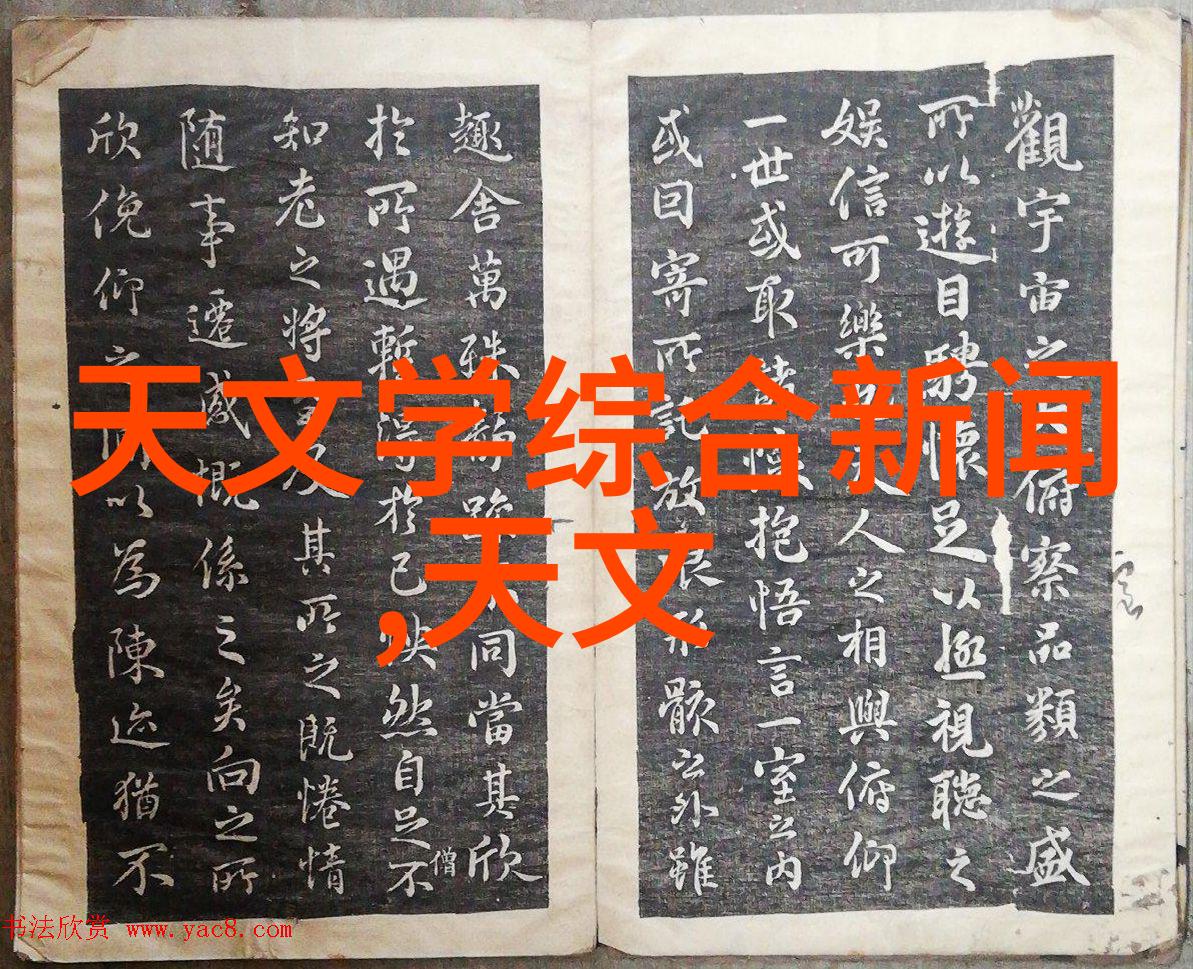 觀宇宙之大俯察品類之盛
所以遊目騁懷足以極視聽之
娛信可樂也夫人之相與俯仰
一世或取諸懷抱悟言一室之內
或因寄所託放浪形骸之外雖
趣舍萬殊靜躁不同當其欣
於所遇暫得於己怏然自足不
僧
知老之將至及其所之既惓情
隨事遷感慨係之矣向之所
欣俛仰之間以為陳迹猶不
天文学综合新闻
,天文
书法欣赏 www.yac8.com